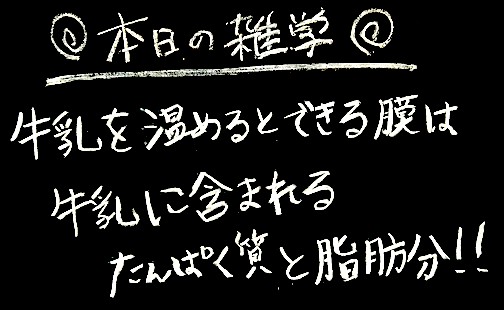 ◎本日の雑学◎
牛乳を温めるとできる膜は
牛乳に含まれる
たんぱく質と脂肪分!!